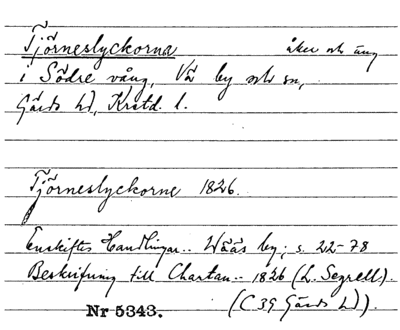 Tjörneslyckorna åker och äng
i Södre vång, Vä by och sn,
Gärds hd, Krstd. l.
Tjörneslyckorne 1826.
Enskiftes Handlingar.. Wääs by; s. 22-78
Beskrifning till Chartan.. 1826 (L. Segrell).
(C 39 Gärds hd).
Nr 5343.